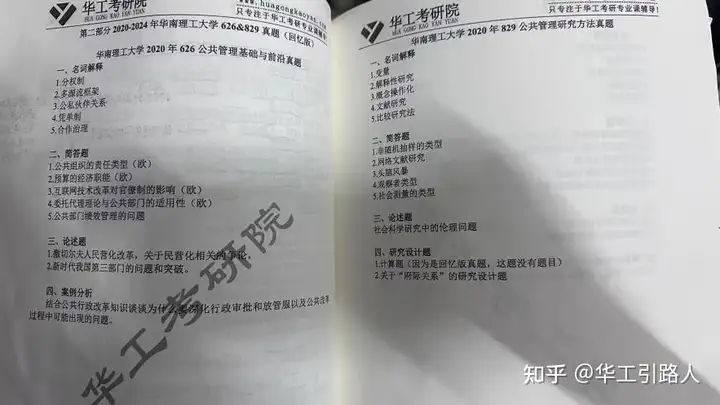 华工考研院
HUA GONG KAO YAN YUAN
www.huagongkaoyan.com
只专注于华工考研专业课辅导!
第二部分 2020-2024 年华南理工大学 626&829 真题（回忆版）
华南理工大学 2020 年 626 公共管理基础与前沿真题
一、名词解释
1.分权制
2.多源流框架
3.公私伙伴关系
4.凭单制
5.合作治理
二、简答题
1.公共组织的责任类型（欧）
2.预算的经济职能（欧）
3.互联网技术改革对官僚制的影响（欧）
4.委托代理理论与公共部门的适用性（欧）
5.公共部门绩效管理的问题
三、论述题
1.撒切尔夫人民营化改革，关于民营化相关的争论。
2.新时代我国第三部门的问题和突破。
四、案例分析
结合公共行政改革知识谈谈为什么要深化行政审批和放管服以及公共改革
过程中可能出现的问题。
华工考研院
华工考研院
HUA GONG KAO YAN YUAN
只专注于华工考研专业课辅导!
华南理工大学 2020 年 829 公共管理研究方法真题
一、名词解释
1.变量
2.解释性研究
3.概念操作化
4.文献研究
5.比较研究法
二、简答题
1.非随机抽样的类型
2.网络文献研究
3.头脑风暴
4.观察者类型
5.社会测量的类型
三、论述题
社会科学研究中的伦理问题
四、研究设计题
1.计算题（因为是回忆版真题，这题没有题目）
2.关于“府际关系”的研究设计题
知乎 @华工引路人